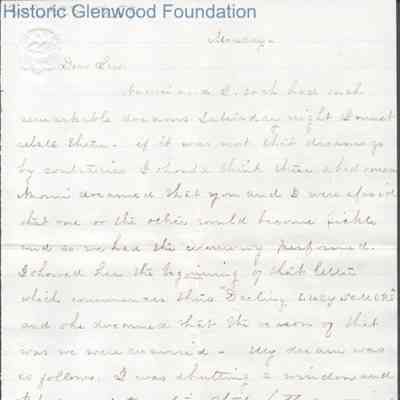 Historic Gleawood Foundation
Monday -
Dear Lew.
Naomi & I each had such
remarkable dreams Saturday night I must
relate them. If it was not that dreams go
by contraries I should think these a bad omen
Naomi dreamed that you and I were afraid
that one or the other would become fickle
and so we had the ceremony performed.
I showed her the beginning of that letter
which commences thus Darling
and she dreamed that the reason of that
was we were married - My dream was
as follows. I was shutting a window and